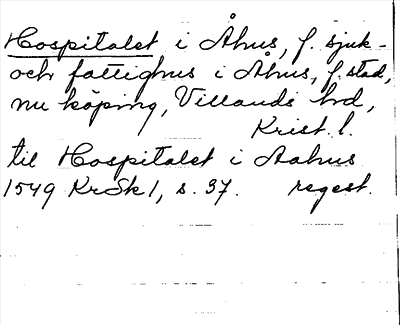 Hospitalet i Åhus, f. sjuk-
och fattighus i Åhus, f. stad,
nu köping, Villands hrd,
Krist. l.
til Hospitalet i Aahus
1549 KrSk 1, s. 37. regest.